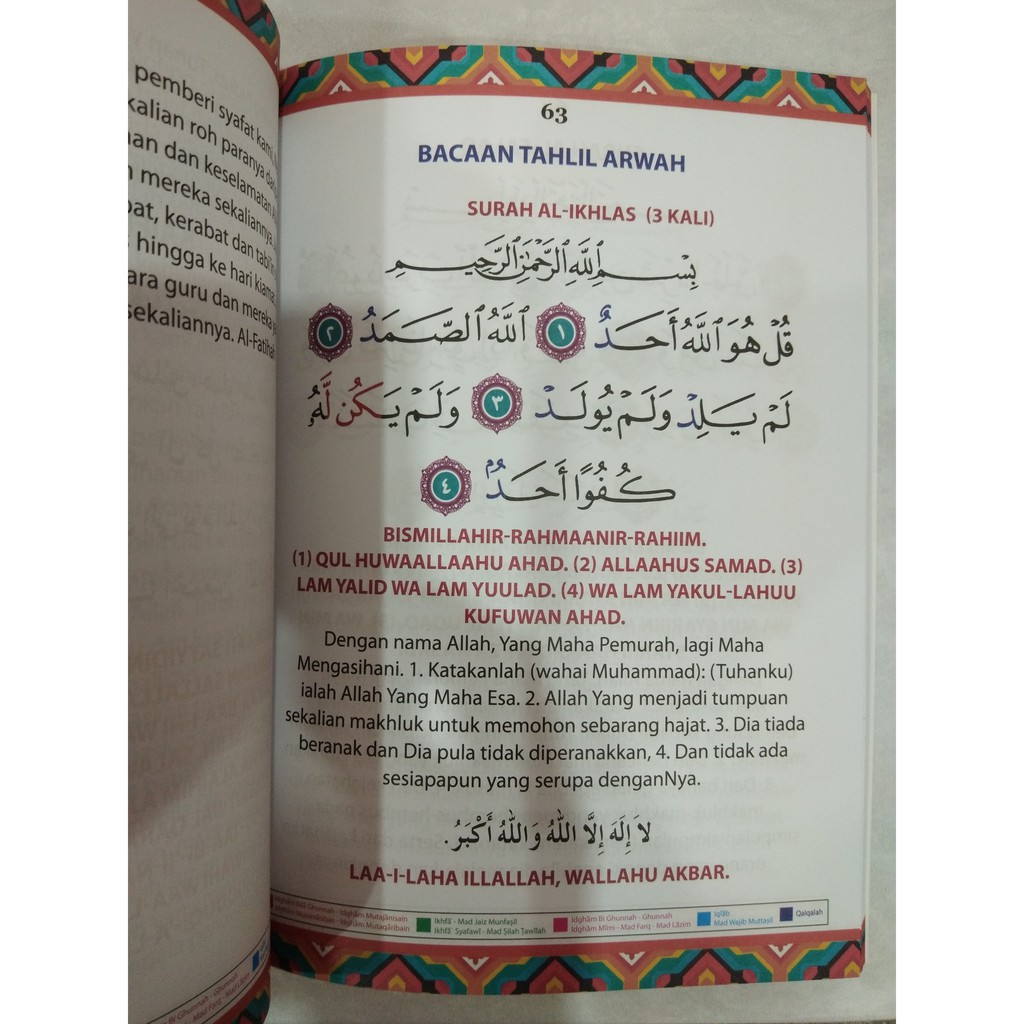 pemberi syafat kami,
kalian roh paranya
dan keselamatan
mereka sekaliannya.
kerabat dan
hingga ke hari kiamat
ara guru dan mereka
sekaliannya. Al-Fatihah
63
BACAAN TAHLIL ARWAH
SURAH AL-IKHLAS (3 KALI)
بِسْمِ ٱللَّهِ ٱلرَّحْمَٰنِ ٱلرَّحِيمِ
قُلْ هُوَ ٱللَّهُ أَحَدٌ ١ ٱللَّهُ ٱلصَّمَدُ ٢
لَمْ يَلِدْ وَلَمْ يُولَدْ ٣ وَلَمْ يَكُن لَّهُۥ
كُفُوًا أَحَدٌۢ ٤
BISMILLAHIR-RAHMAANIR-RAHIIM.
(1) QUL HUWAALLAAHU AHAD. (2) ALLAAHUS SAMAD. (3)
LAM YALID WA LAM YUULAD. (4) WA LAM YAKUL-LAHUU
KUFUWAN AHAD.
Dengan nama Allah, Yang Maha Pemurah, lagi Maha
Mengasihani. 1. Katakanlah (wahai Muhammad): (Tuhanku)
ialah Allah Yang Maha Esa. 2. Allah Yang menjadi tumpuan
sekalian makhluk untuk memohon sebarang hajat. 3. Dia tiada
beranak dan Dia pula tidak diperanakkan, 4. Dan tidak ada
sesiapapun yang serupa denganNya.
لاَ إِلَهَ إِلَّا اللهُ وَاللهُ أَكْبَرُ.
LAA-I-LAHA ILLALLAH, WALLAHU AKBAR.
Idghām Mutajānisain
Idghām Mutaqāribain
Ikhfā' - Mad Jaiz Munfaṣil
Ikhfā' Syafawī - Mad Ṣilah Ṭawīlah
Idghām Bi Ghunnah - Ghunnah
Idghām Mīmī - Mad Farq - Mad Lāzim
Iqlāb
Mad Wajib Muttaṣil
Qalqalah
Bi Ghunnah - Ghunnah
Mad Farq - Mad Lāzim